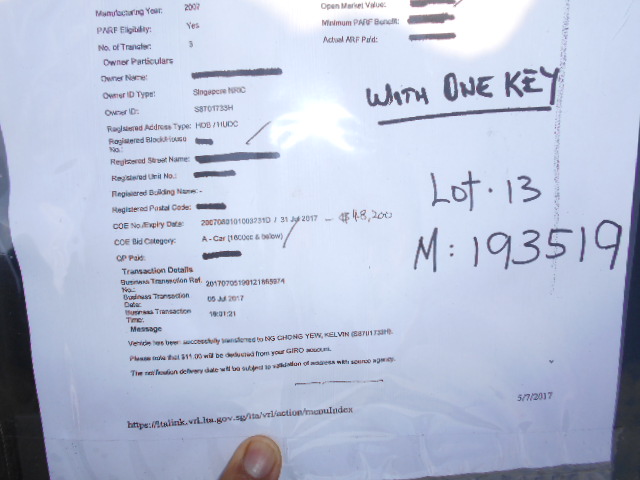 Manufacturing Year: 2007
Open Market Value:
PARF Eligibility: Yes
Minimum PARF Benefit:
No. of Transfer: 3
Actual ARF Paid:
Owner Particulars
Owner Name:
Owner ID Type: Singapore NRIC
Owner ID: S8701733H
WITH ONE KEY
Registered Address Type: HDB / HUDC
Registered Block/House
No.:
Registered Street Name:
Registered Unit No.:
Registered Building Name: -
Lot. 13
Registered Postal Code:
COE No./Expiry Date: / 31 Jul 2017 - $48,200
COE Bid Category: A - Car (1600cc & below)
M: 193519
QP Paid:
Transaction Details
Business Transaction Ref.
No.:
Business Transaction
Date: 05 Jul 2017
Business Transaction
Time: 16:01:21
Message
Vehicle has been successfully transferred to NG CHONG YEW, KELVIN (S8701733H).
Please note that $11.00 will be deducted from your GIRO account.
The notification delivery date will be subject to validation of address with source agency.
5/7/2017
https://ltalink.vrl.lta.gov.sg/lta/vrl/action/menuIndex